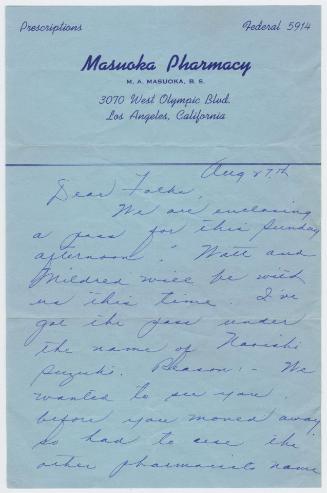 Prescriptions
Federal 5914
Masuoka Pharmacy
M. A. MASUOKA, B. S.
3070 West Olympic Blvd.
Los Angeles, California
Aug 27th
Dear Folks,
We are enclosing
a pass for this Sunday
afternoon. Watt and
Mildred will be with
us this time. I've
got the pass under
the name of
Suzuki. Reason:- We
wanted to see you
before you moved away
so had to use the
other pharmacists name